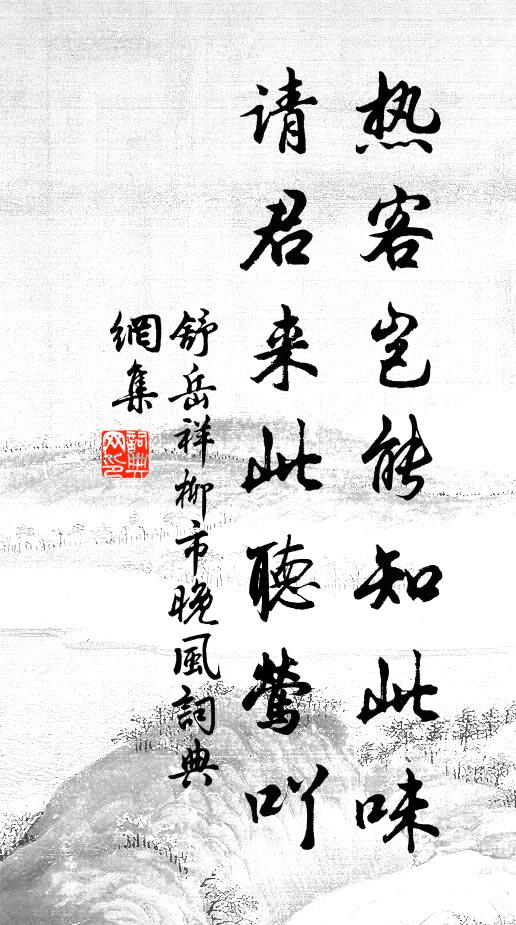 热客岂能知此味
请君来此聴莺吖
舒岳祥柳市晚風詞典
網集
詞典网印